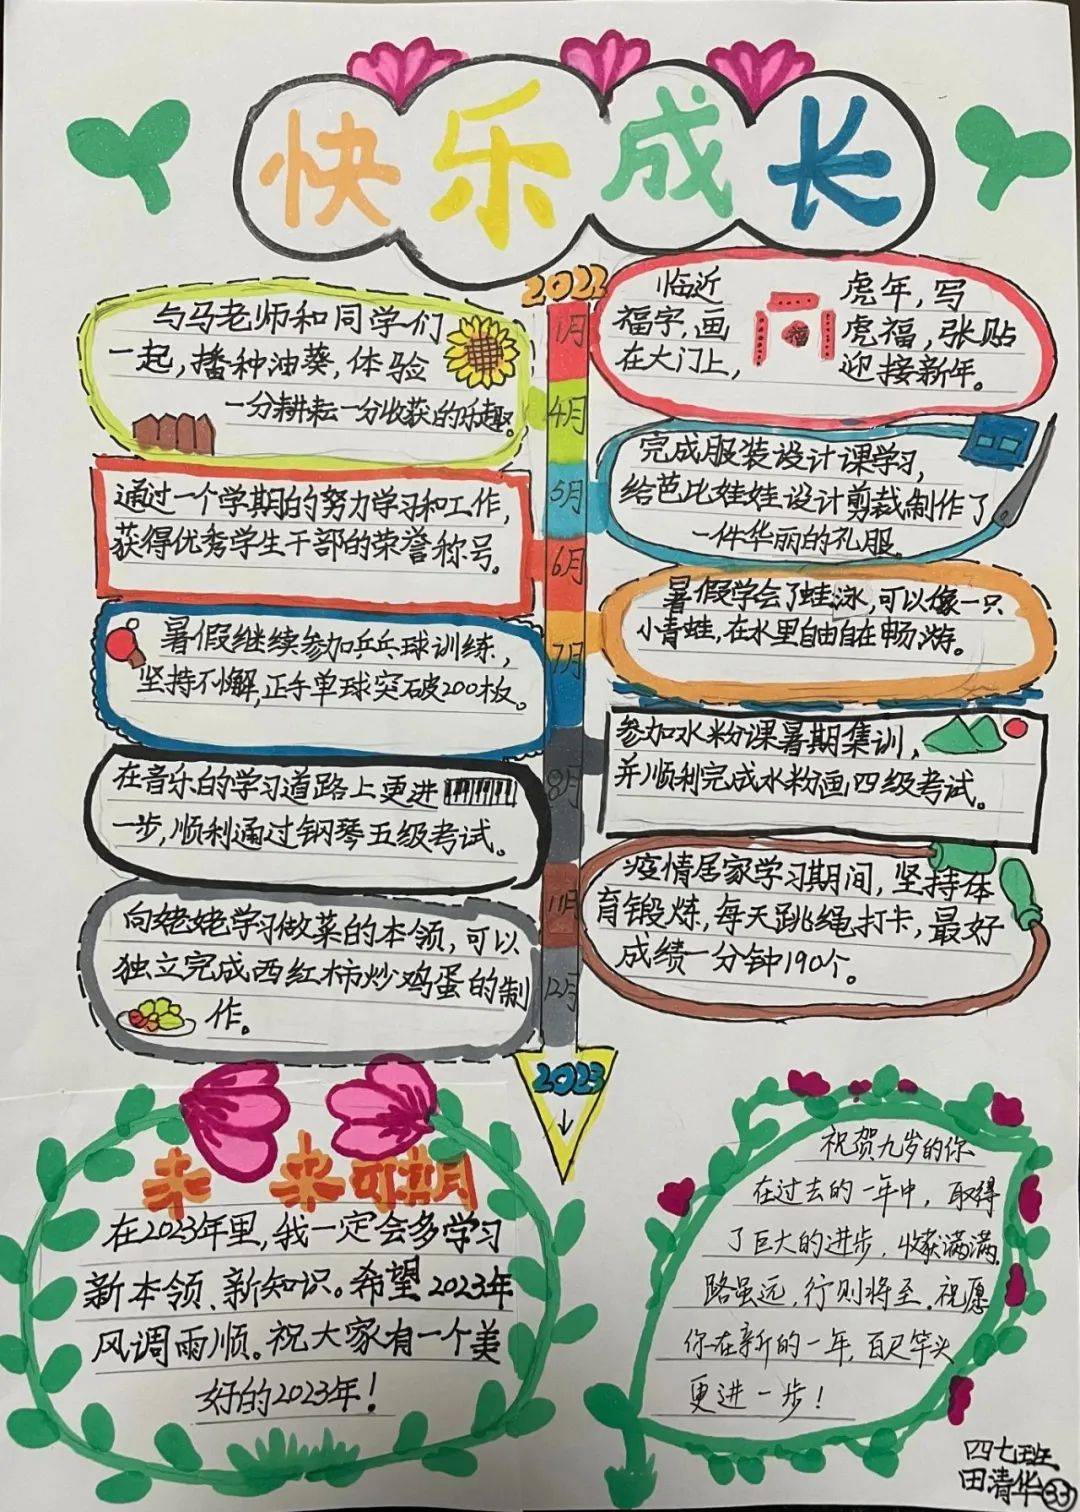 快乐成长
2022
1月
临近
虎年,写
福字,画
虎福,张贴
在大门上,
迎接新年。
福
与马老师和同学们
一起,播种油葵,体验
一分耕耘一分收获的乐趣。
4月
完成服装设计课学习,
给芭比娃娃设计剪裁制作了
一件华丽的礼服。
5月
通过一个学期的努力学习和工作,
获得优秀学生干部的荣誉称号。
6月
暑假学会了蛙泳,可以像一只
小青蛙,在水里自由自在畅游。
7月
暑假继续参加乒乓球训练,
坚持不懈,正手单球突破200板。
参加水粉课暑期集训,
并顺利完成水粉画四级考试。
8月
在音乐的学习道路上更进
一步,顺利通过钢琴五级考试。
疫情居家学习期间,坚持体
育锻炼,每天跳绳打卡,最好
成绩一分钟190个。
11月
向姥姥学习做菜的本领,可以
独立完成西红柿炒鸡蛋的制
作。
12月
2023
未来可期
在2023年里,我一定会多学习
新本领、新知识。希望2023年
风调雨顺。祝大家有一个美
好的2023年!
祝贺九岁的你
在过去的一年中,取得
了巨大的进步,收获满满.
路虽远,行则将至。祝愿
你在新的一年,百尺竿头
更进一步!
四七班
田清华33